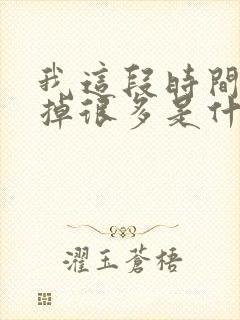 我這段時間
掉很多是什
濯玉蒼梧